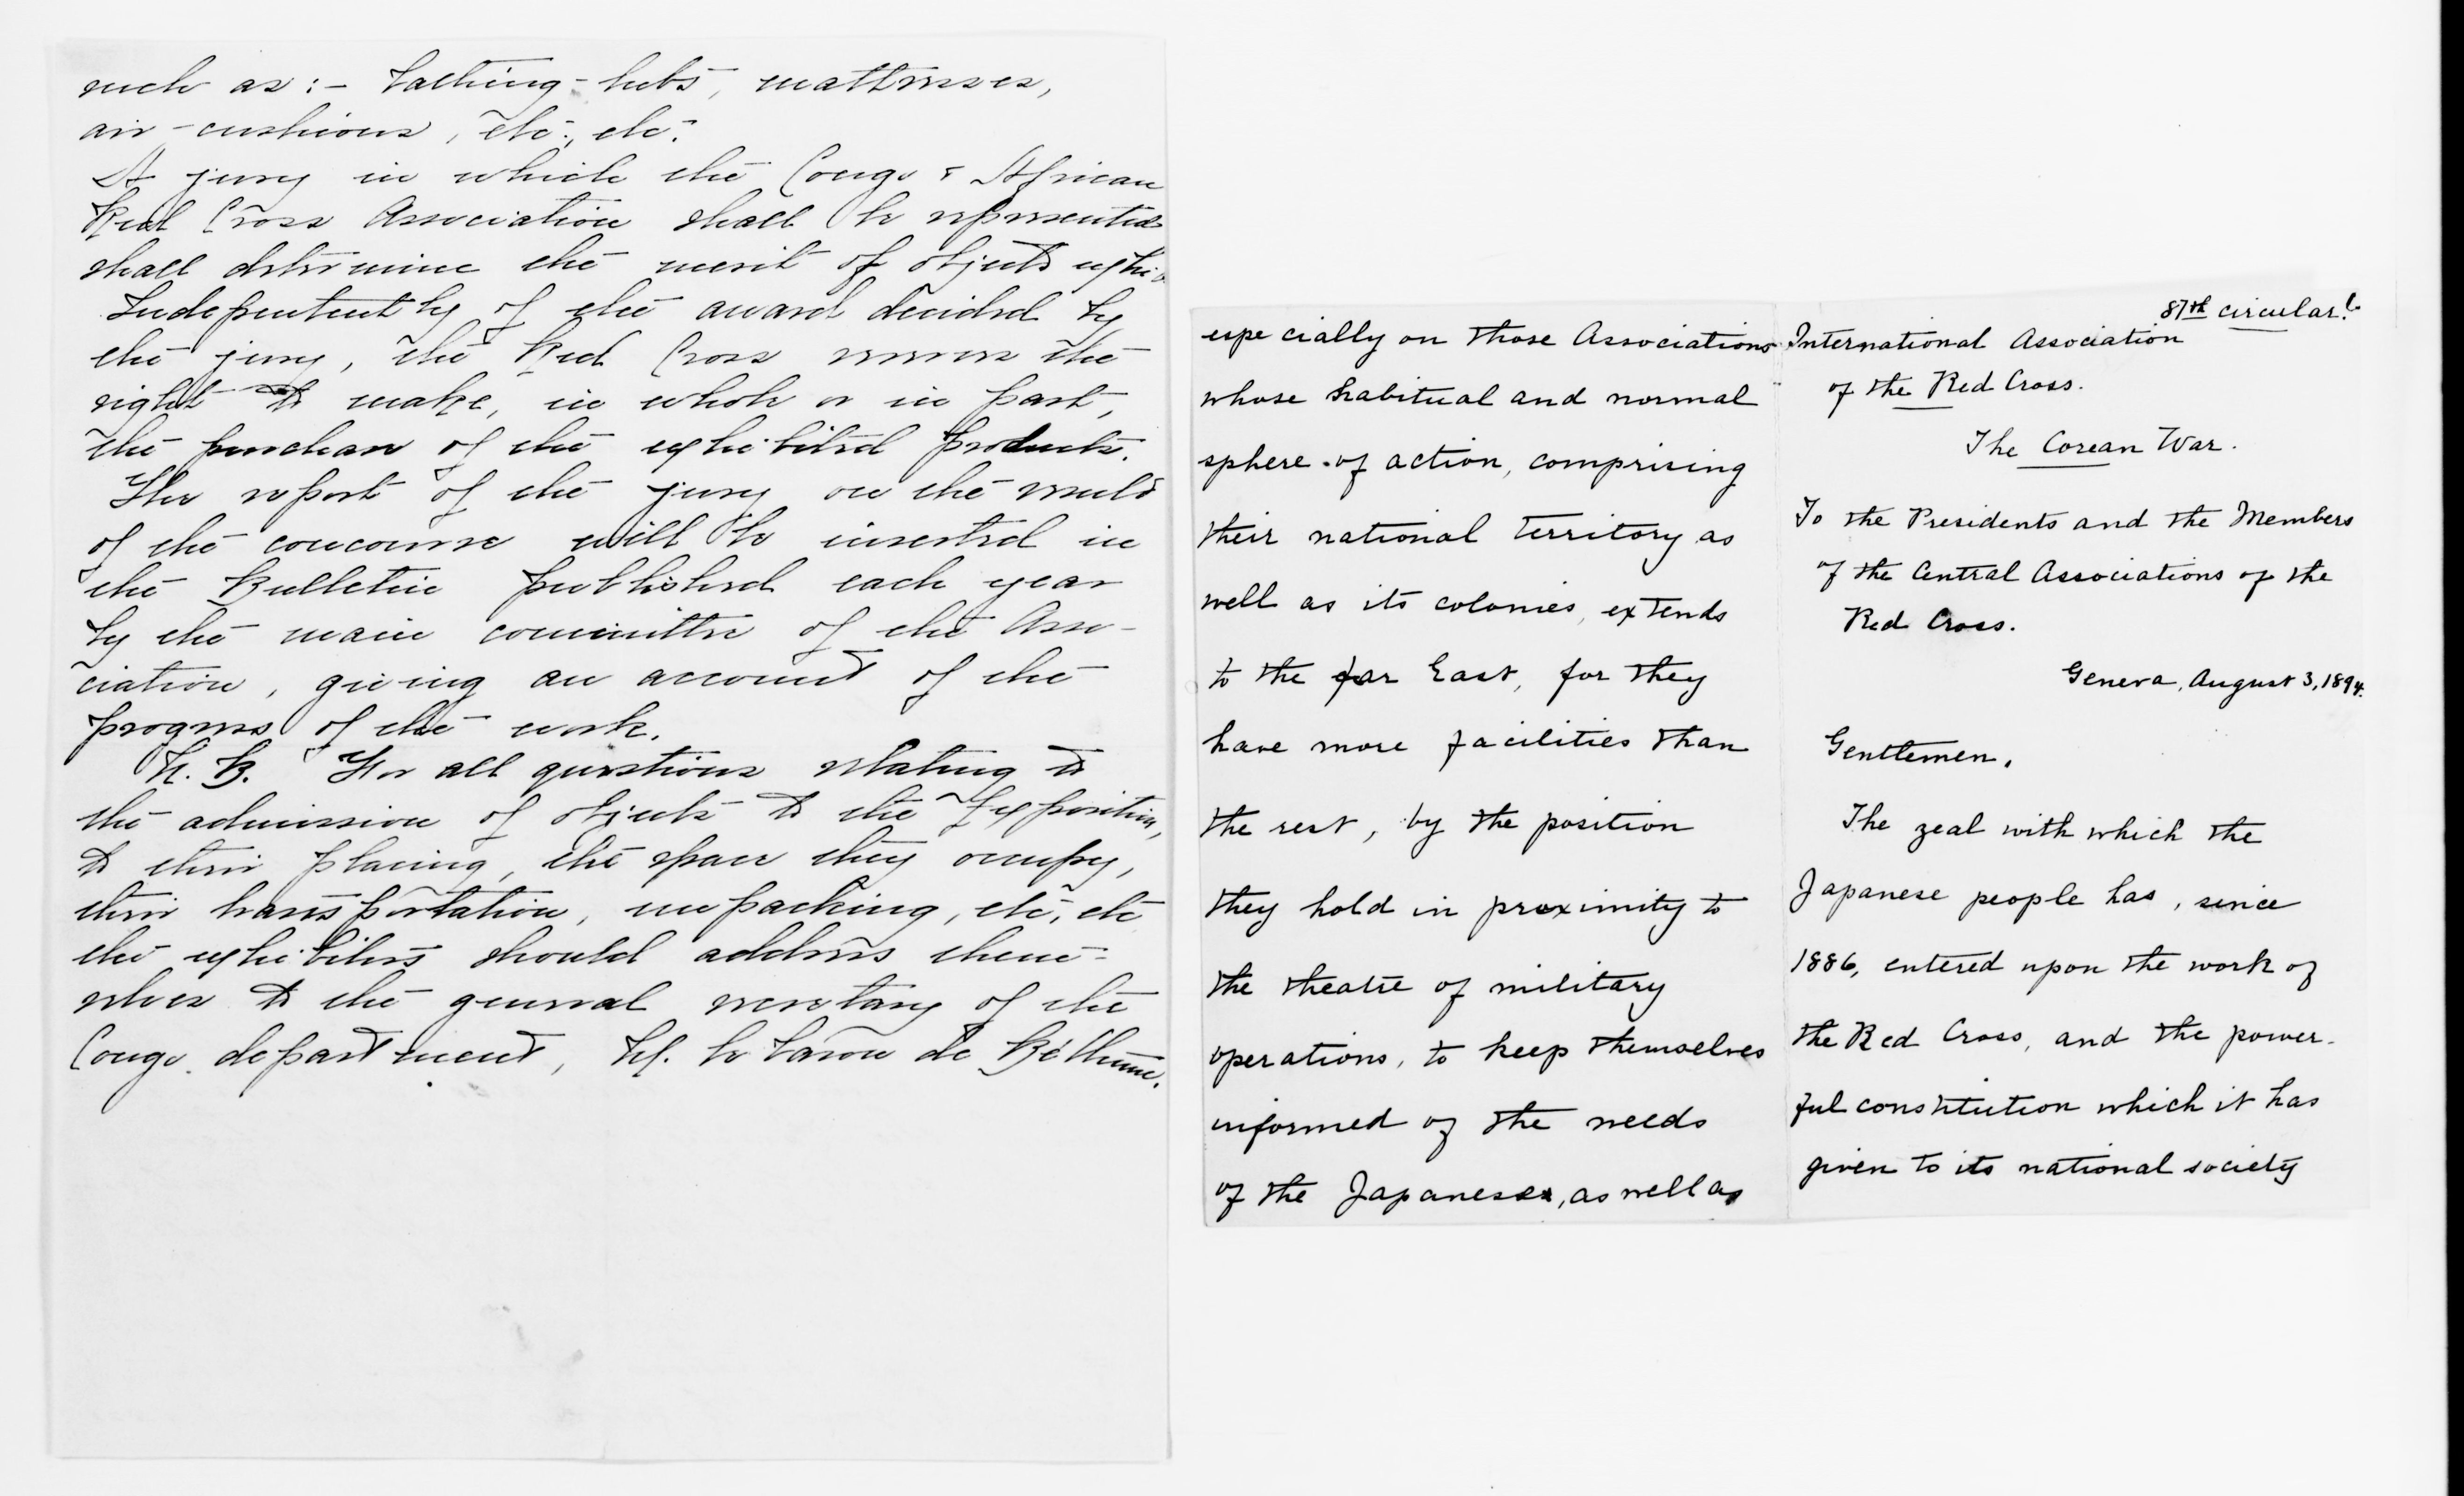 such as :- bathing-tubs, mattresses,
air-cushions, etc., etc.
A jury in which the Congo & African
Red Cross Association shall be represented
shall determine the merit of objects exhib
Independently of the award decided by
the jury, the Red Cross reserves the
right to make, in whole or in part,
the purchase of the exhibited products.
The report of the jury on the result
of the concourse will be inserted in
the Bulletin published each year
by the main committee of the Asso-
ciation, giving an account of the
progress of the work.
N. B. For all questions relating to
the admission of objects to the Exposition,
to their placing, the space they occupy,
their transportation, unpacking, etc, etc
the exhibitors should address them-
selves to the general secretary of the
Congo department, M. le baron de Béthune.
especially on those Associations
whose habitual and normal
sphere of action, comprising
their national territory as
well as its colonies, extends
to the far East, for they
have more facilities than
the rest, by the position
they hold in proximity to
the theatre of military
operations, to keep themselves
informed of the needs
of the Japanese, as well as
87th circular.
International Association
of the Red Cross.
The Corean War.
To the Presidents and the Members
of the Central Associations of the
Red Cross.
Geneva, August 3, 1894.
Gentlemen,
The zeal with which the
Japanese people has, since
1886, entered upon the work of
the Red Cross, and the power-
ful constitution which it has
given to its national society